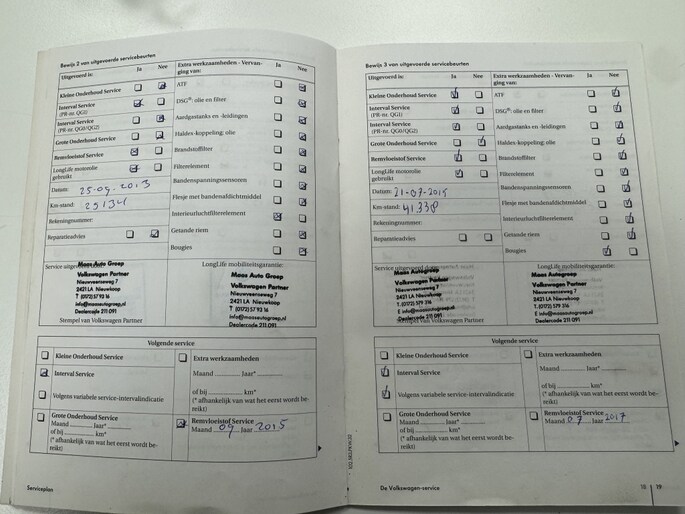 Bewijs 2 van uitgevoerde servicebeurten
Uitgevoerd is: Ja Nee
Kleine Onderhoud Service
Interval Service
(PR-nr. QG1)
Interval Service
(PR-nr. QG0/QG2)
Grote Onderhoud Service
Remvloeistof Service
LongLife motorolie
gebruikt
Datum: 25-09-2013
Km-stand: 25134
Rekeningnummer:
Reparatieadvies
Extra werkzaamheden - Vervan- Ja Nee
ging van:
ATF
DSG®: olie en filter
Aardgastanks en -leidingen
Haldex-koppeling: olie
Brandstoffilter
Filterelement
Bandenspanningssensoren
Flesje met bandenafdichtmiddel
Interieurluchtfilterelement
Getande riem
Bougies
Service uitgevoerd
Maas Auto Groep
Volkswagen Partner
Nieuwveenseweg 7
2421 LA Nieuwkoop
T (0172) 57 92 16
info@maasautogroep.nl
Dealercode 211 091
Stempel van Volkswagen Partner
LongLife mobiliteitsgarantie:
Maas Auto Groep
Volkswagen Partner
Nieuwveenseweg 7
2421 LA Nieuwkoop
T (0172) 57 92 16
info@maasautogroep.nl
Dealercode 211 091
Volgende service
Kleine Onderhoud Service
Interval Service
Volgens variabele service-intervalindicatie
Extra werkzaamheden
Maand Jaar*
of bij km*
(* afhankelijk van wat het eerst wordt be-
reikt)
Grote Onderhoud Service
Maand Jaar*
of bij km*
(* afhankelijk van wat het eerst wordt be-
reikt)
Remvloeistof Service
Maand 09 Jaar 2015
Serviceplan
Bewijs 3 van uitgevoerde servicebeurten
Uitgevoerd is: Ja Nee
Kleine Onderhoud Service
Interval Service
(PR-nr. QG1)
Interval Service
(PR-nr. QG0/QG2)
Grote Onderhoud Service
Remvloeistof Service
LongLife motorolie
gebruikt
Datum: 21-07-2015
Km-stand: 41338
Rekeningnummer:
Reparatieadvies
Extra werkzaamheden - Vervan- Ja Nee
ging van:
ATF
DSG®: olie en filter
Aardgastanks en -leidingen
Haldex-koppeling: olie
Brandstoffilter
Filterelement
Bandenspanningssensoren
Flesje met bandenafdichtmiddel
Interieurluchtfilterelement
Getande riem
Bougies
Service uitgevoerd door:
Maas Autogroep
Volkswagen Partner
Nieuwveenseweg 7
2421 LA Nieuwkoop
T. (0172) 579 216
E info@maasautogroep.nl
Dealercode 211 091
Stempel van Volkswagen Partner
LongLife mobiliteitsgarantie:
Maas Autogroep
Volkswagen Partner
Nieuwveenseweg 7
2421 LA Nieuwkoop
T. (0172) 579 216
E info@maasautogroep.nl
Dealercode 211 091
Volgende service
Kleine Onderhoud Service
Interval Service
Volgens variabele service-intervalindicatie
Extra werkzaamheden
Maand Jaar*
of bij km*
(* afhankelijk van wat het eerst wordt be-
reikt)
Grote Onderhoud Service
Maand Jaar*
of bij km*
(* afhankelijk van wat het eerst wordt be-
reikt)
Remvloeistof Service
Maand 07 Jaar 2017
De Volkswagen-service 18 19